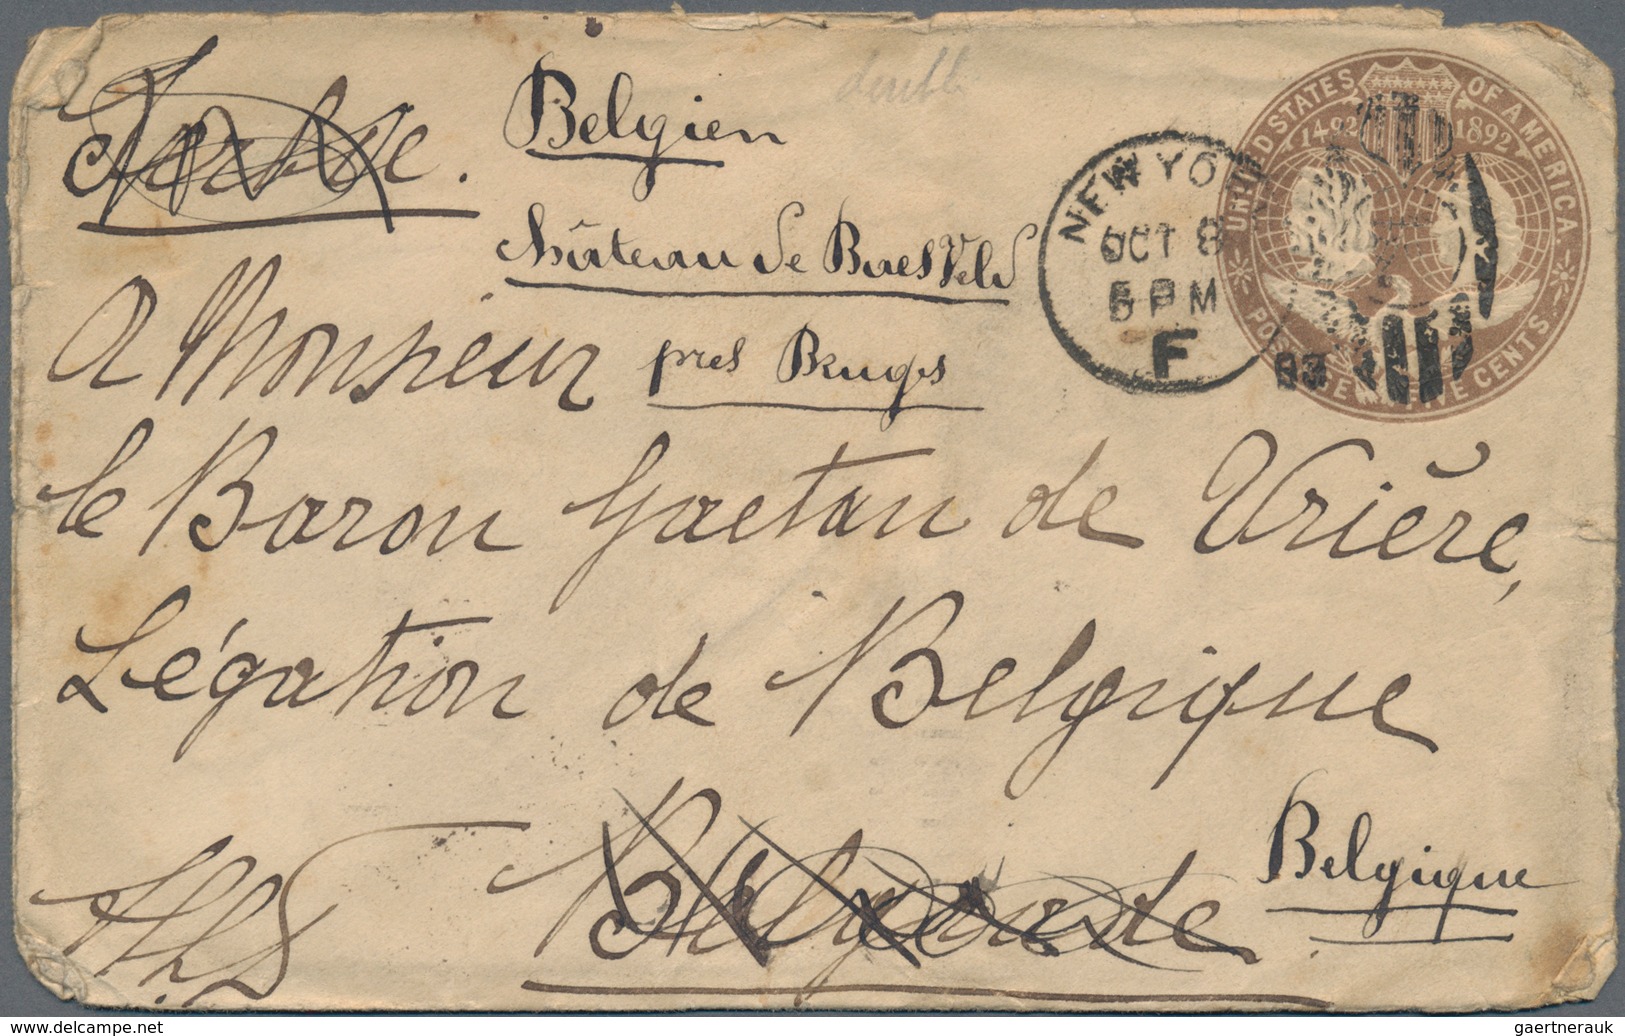 UNITED STATES OF AMERICA
1492 1892
POSTAGE FIVE CENTS.
NEW YO
OCT 8
5 PM
F
93
Belgien
Serbie.
Château de BaesVeld
A Monsieur
près Bruges
le Baron Gaetan de Vrière,
Légation de Belgique
Belgique
Belgrade
www.delcampe.net
gaertnerauk